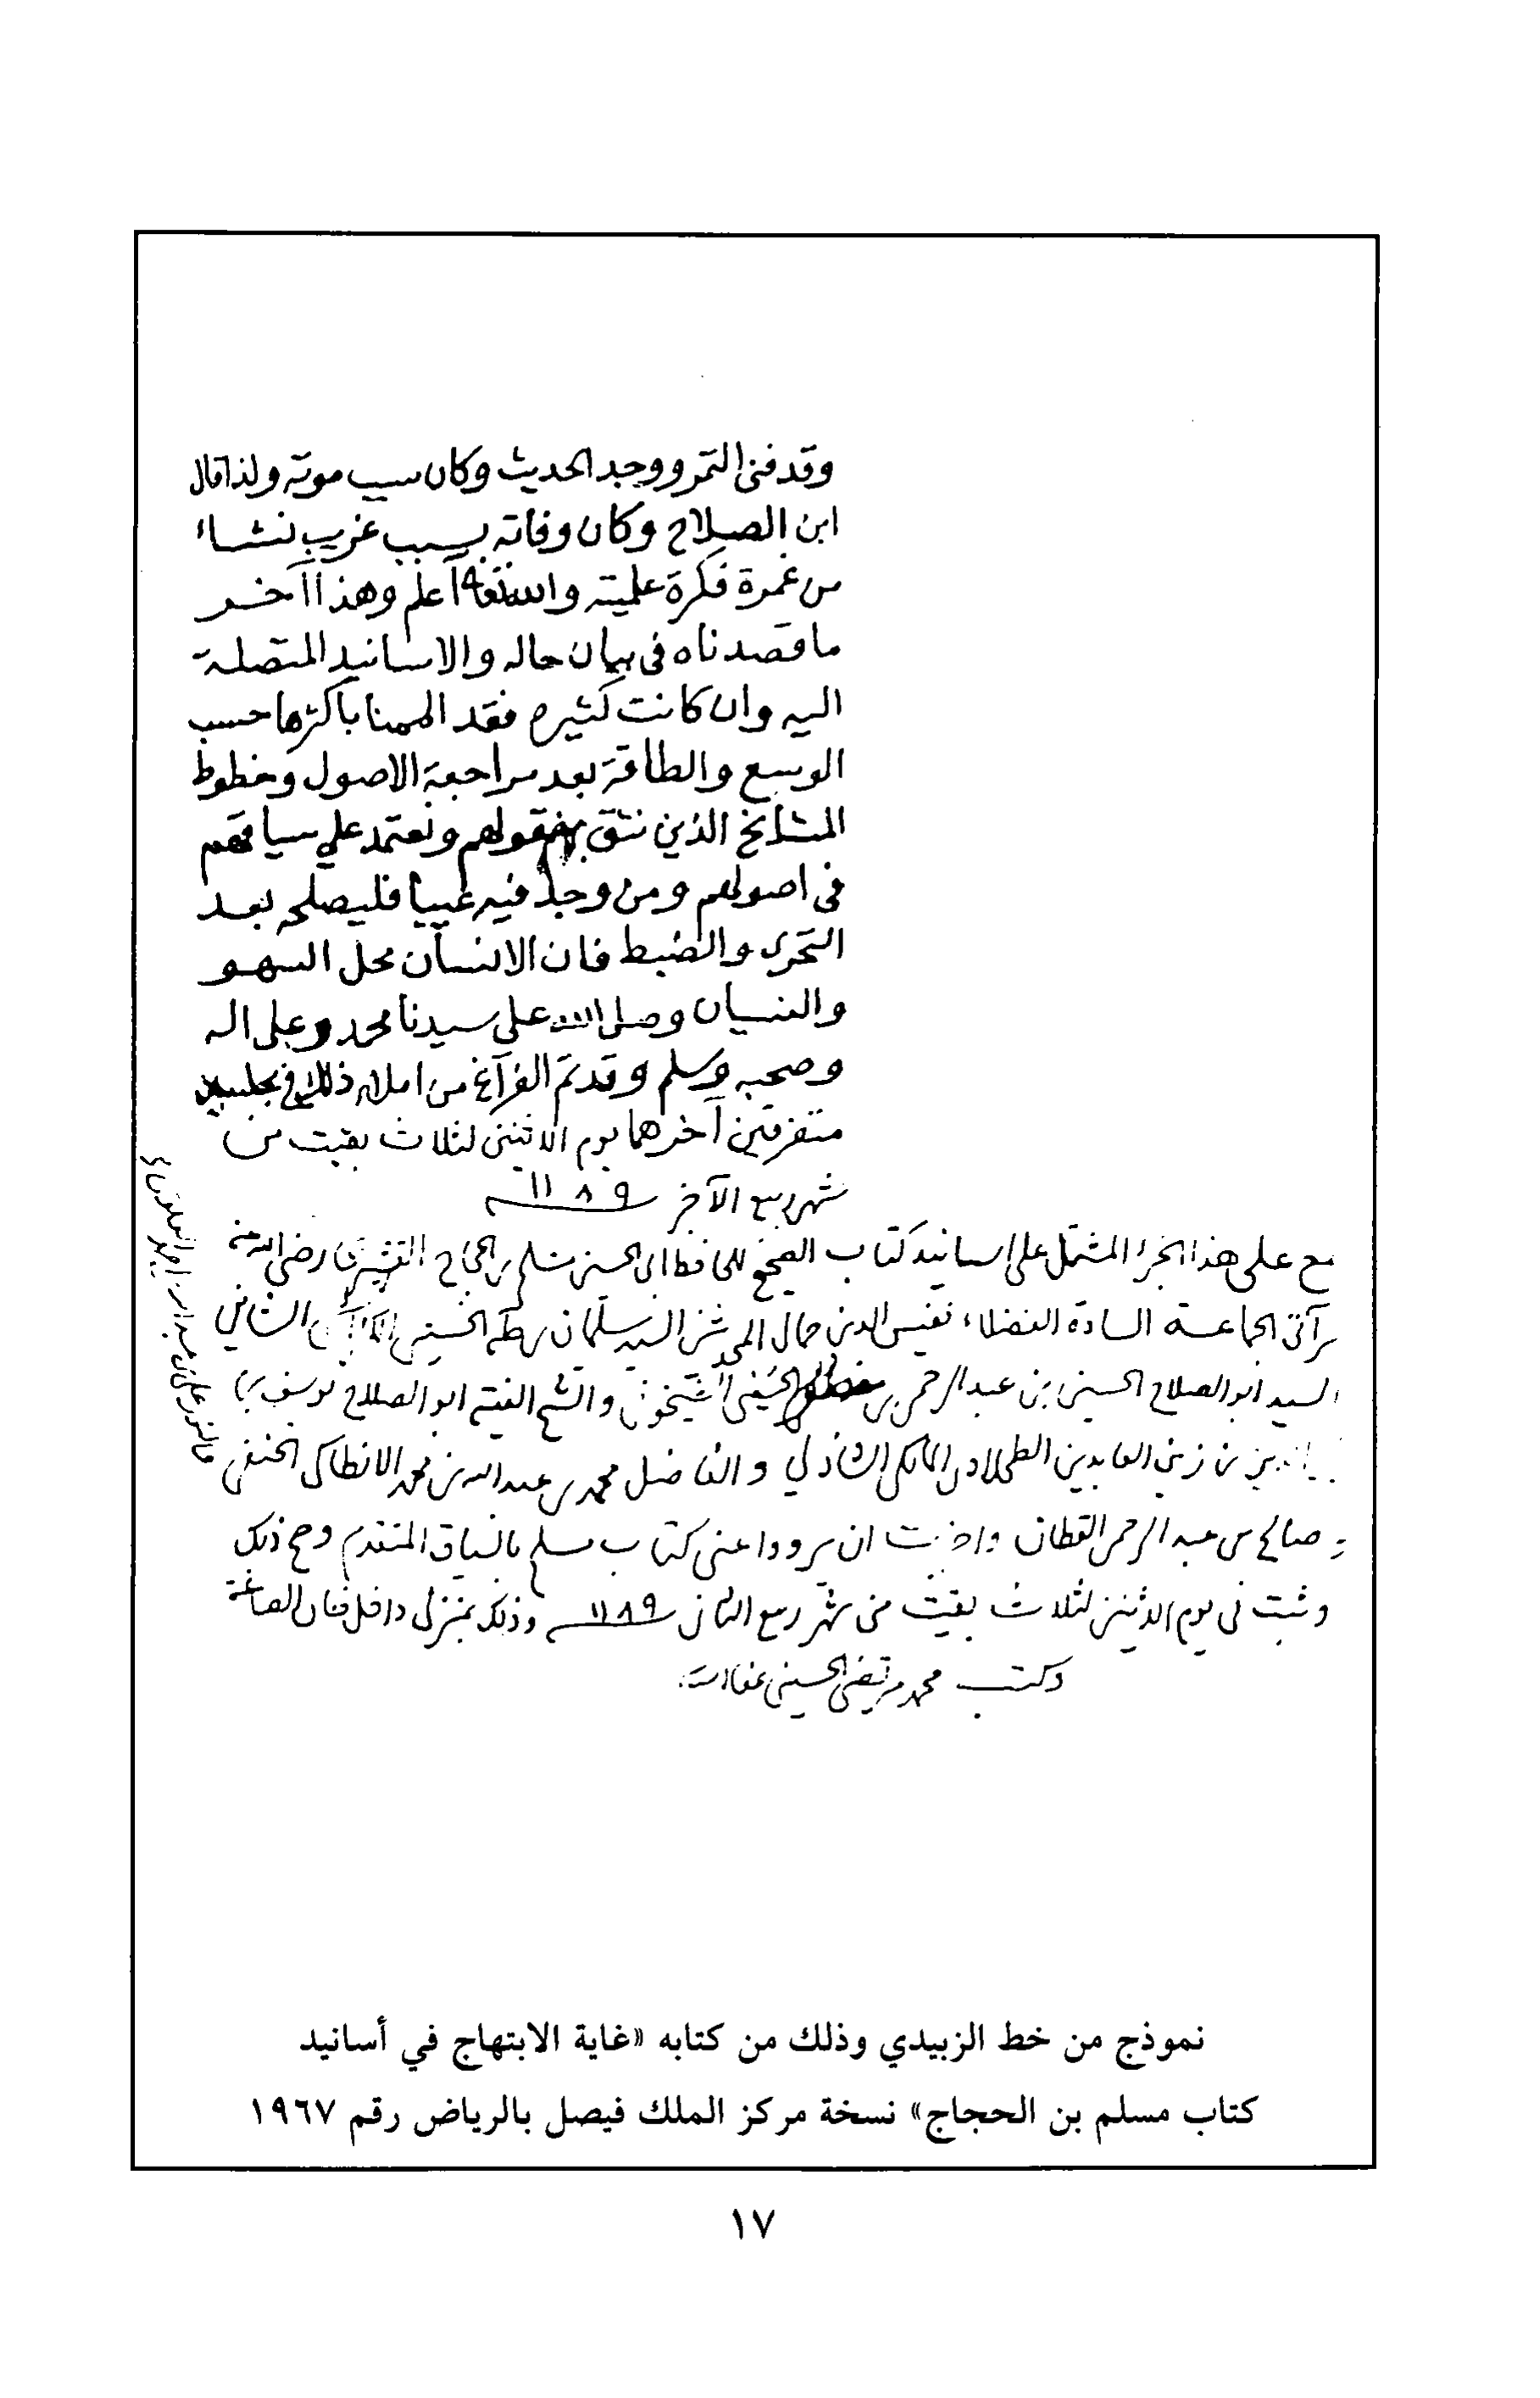 وقد فنى التمر ووجد الحديث وكان سبب موته ولذا قال
ابن الصلاح وكان وفاته بسبب غريب نشاء
من غمرة فكرة علمية والله تعالى اعلم وهذا آخر
ما قصدناه فى بيان حاله والاسانيد المتصلة
اليه وان كانت كثيره فقد الممنا باكثرها حسب
الوسع والطاقة بعد مراجعة الاصول وخطوط
المشايخ الذين نثق ونعتمد على سياقهم
فى اصولهم ومن وجد فيه عيبا فليصلحه بعد
التحرى والضبط فان الانسان محل السهو
والنسيان وصلى الله على سيدنا محمد وعلى اله
وصحبه وسلم وقد تم الفراغ من املاء ذلك فى مجلسين
متفرقين آخرهما يوم الاثنين لثلاث بقيت من
شهر ربيع الآخر ١١٨٩
سمع على هذا الجزء المشتمل على اسانيد كتاب الصحيح للحافظ ابى الحسين مسلم بن الحجاج القشيرى رضى الله عنه
الجماعة السادة الفضلاء نفيس الدين جمال المحدثين السيد سليمان بن طه الحسينى الشافعى
السيد ابو الصلاح الحسينى بن عبد الرحمن بن الشيخونى والشيخ الفقيه ابو الصلاح يوسف
بن زين العابدين المالكى الشاذلي والفاضل محمد بن عبد الله بن محمد الانطاكى الحنفى
صالح بن عبد الرحمن القطان واجزت ان يرووا عنى كتاب مسلم بالسياق المتقدم وصح ذلك
وثبت فى يوم الاثنين لثلاث بقيت من شهر ربيع الثانى ١١٨٩ وذلك بمنزلى داخل خان الصاغة
وكتب محمد مرتضى الحسينى عفا الله عنه
نموذج من خط الزبيدي وذلك من كتابه «غاية الابتهاج في أسانيد
كتاب مسلم بن الحجاج» نسخة مركز الملك فيصل بالرياض رقم ١٩٦٧
١٧